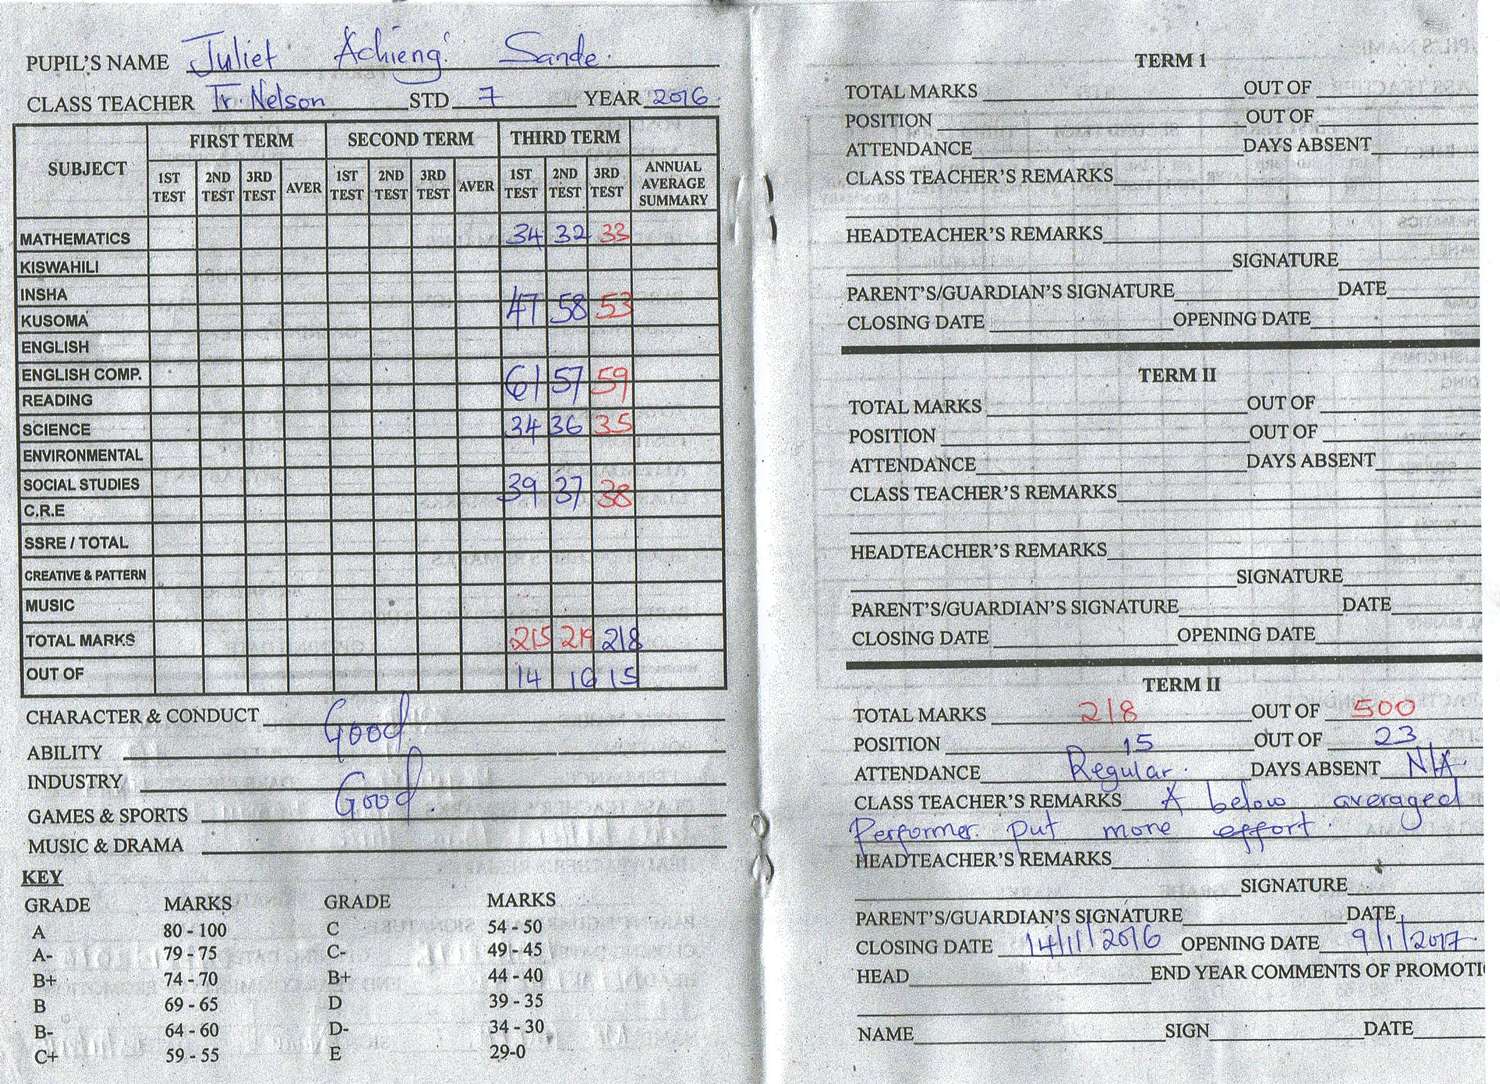 PUPIL'S NAME Juliet Achieng' Sande.
CLASS TEACHER Tr. Nelson STD 7 YEAR 2016.
SUBJECT FIRST TERM SECOND TERM THIRD TERM ANNUAL AVERAGE SUMMARY
1ST TEST 2ND TEST 3RD TEST AVER 1ST TEST 2ND TEST 3RD TEST AVER 1ST TEST 2ND TEST 3RD TEST
MATHEMATICS 34 32 33
KISWAHILI
INSHA
KUSOMA 47 58 53
ENGLISH
ENGLISH COMP. 61 57 59
READING
SCIENCE 34 36 35
ENVIRONMENTAL
SOCIAL STUDIES 39 37 38
C.R.E
SSRE / TOTAL
CREATIVE & PATTERN
MUSIC
TOTAL MARKS 215 219 218
OUT OF 14 16 15
CHARACTER & CONDUCT Good
ABILITY
INDUSTRY Good.
GAMES & SPORTS
MUSIC & DRAMA
KEY
GRADE MARKS GRADE MARKS
A 80 - 100 C 54 - 50
A- 79 - 75 C- 49 - 45
B+ 74 - 70 B+ 44 - 40
B 69 - 65 D 39 - 35
B- 64 - 60 D- 34 - 30
C+ 59 - 55 E 29-0
TERM 1
TOTAL MARKS OUT OF
POSITION OUT OF
ATTENDANCE DAYS ABSENT
CLASS TEACHER'S REMARKS
HEADTEACHER'S REMARKS
SIGNATURE
PARENT'S/GUARDIAN'S SIGNATURE DATE
CLOSING DATE OPENING DATE
TERM II
TOTAL MARKS OUT OF
POSITION OUT OF
ATTENDANCE DAYS ABSENT
CLASS TEACHER'S REMARKS
HEADTEACHER'S REMARKS
SIGNATURE
PARENT'S/GUARDIAN'S SIGNATURE DATE
CLOSING DATE OPENING DATE
TERM II
TOTAL MARKS 218 OUT OF 500
POSITION 15 OUT OF 23
ATTENDANCE Regular. DAYS ABSENT N/A
CLASS TEACHER'S REMARKS A below averaged
Performer. put more effort.
HEADTEACHER'S REMARKS
SIGNATURE
PARENT'S/GUARDIAN'S SIGNATURE DATE
CLOSING DATE 14/11/2016 OPENING DATE 9/1/2017.
HEAD END YEAR COMMENTS OF PROMOTI
NAME SIGN DATE